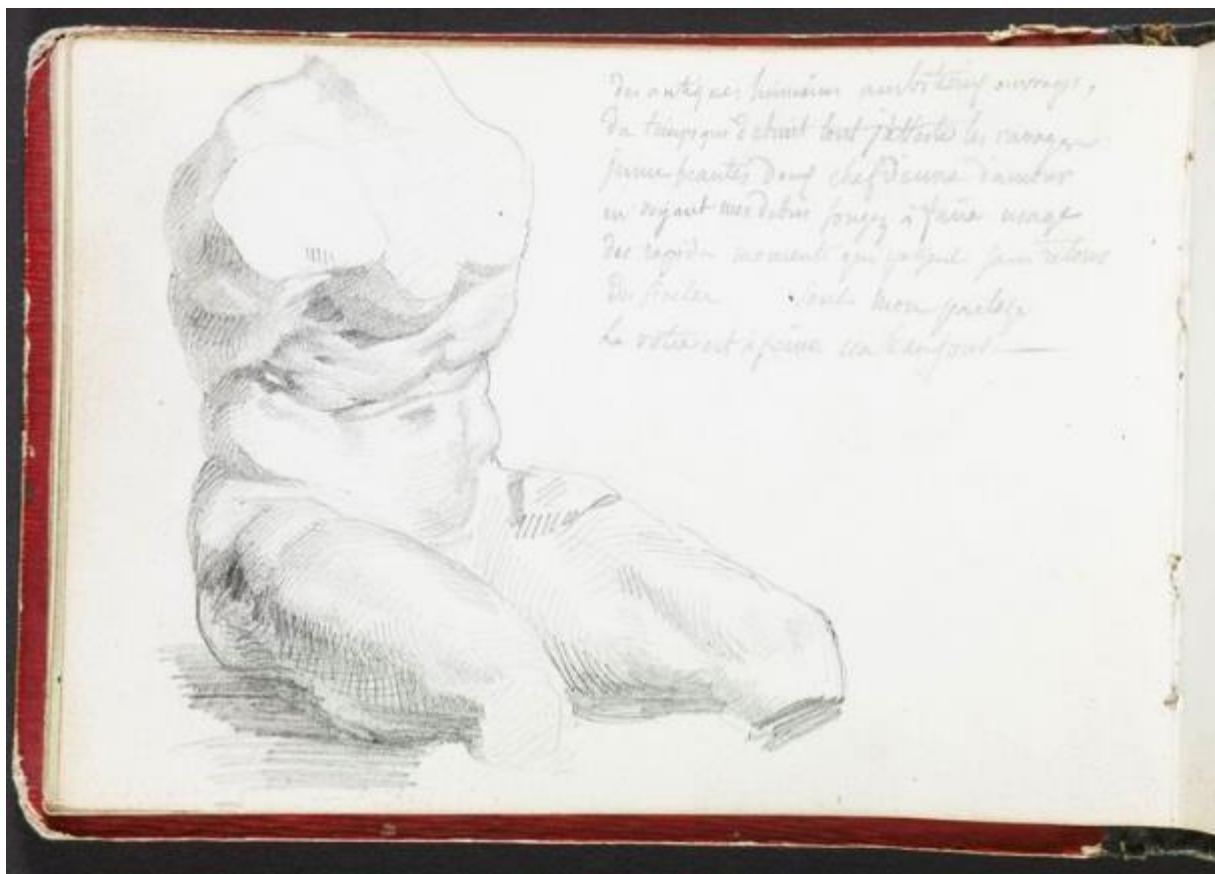 des antiques humains ambitieux ouvrages,
du temps qui detruit tout j'atteste les ravages
jeune beautés doux chef d'euvre d'amour
en voyant mes debris songez à faire usage
des rapides moments qui sans retour
des siecles mon
la votre est à peine un